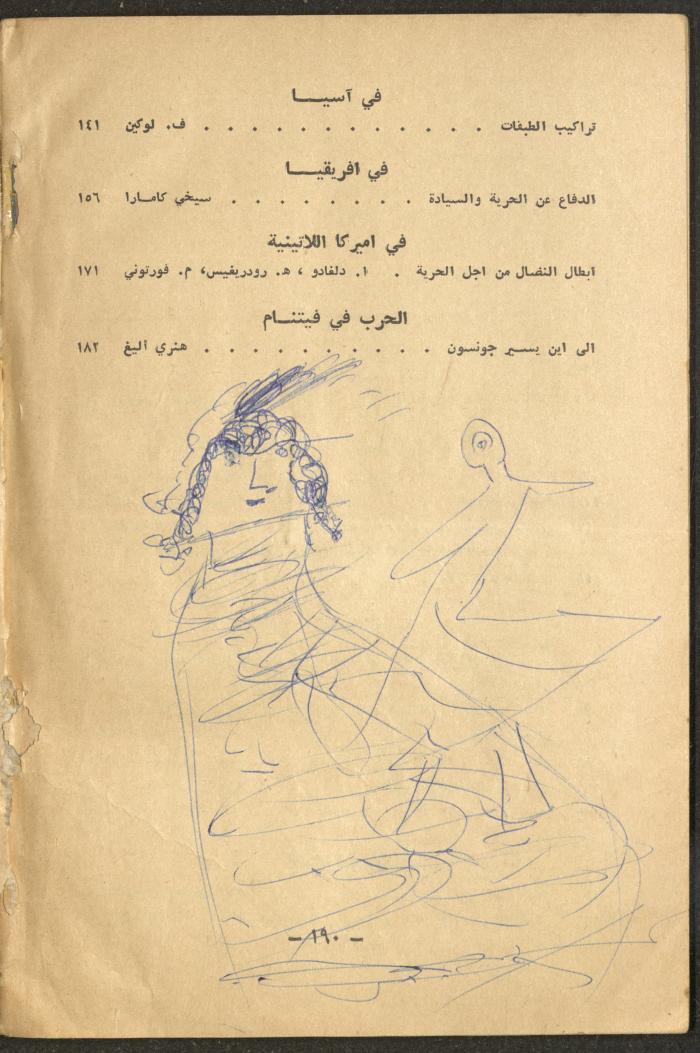 في آسيــا
تراكيب الطبقات . . . . . . . . . . . . ف. لوكين ١٤١
في افريقيــا
الدفاع عن الحرية والسيادة . . . . . . . . سيخي كامارا ١٥٦
في اميركا اللاتينية
ابطال النضال من اجل الحرية . ا. دلفادو ، ه. رودريغيس، م. فورتوني ١٧١
الحرب في فيتنــام
الى اين يسير جونسون . . . . . . . . . . هنري أليغ ١٨٢
– ١٩٠ –